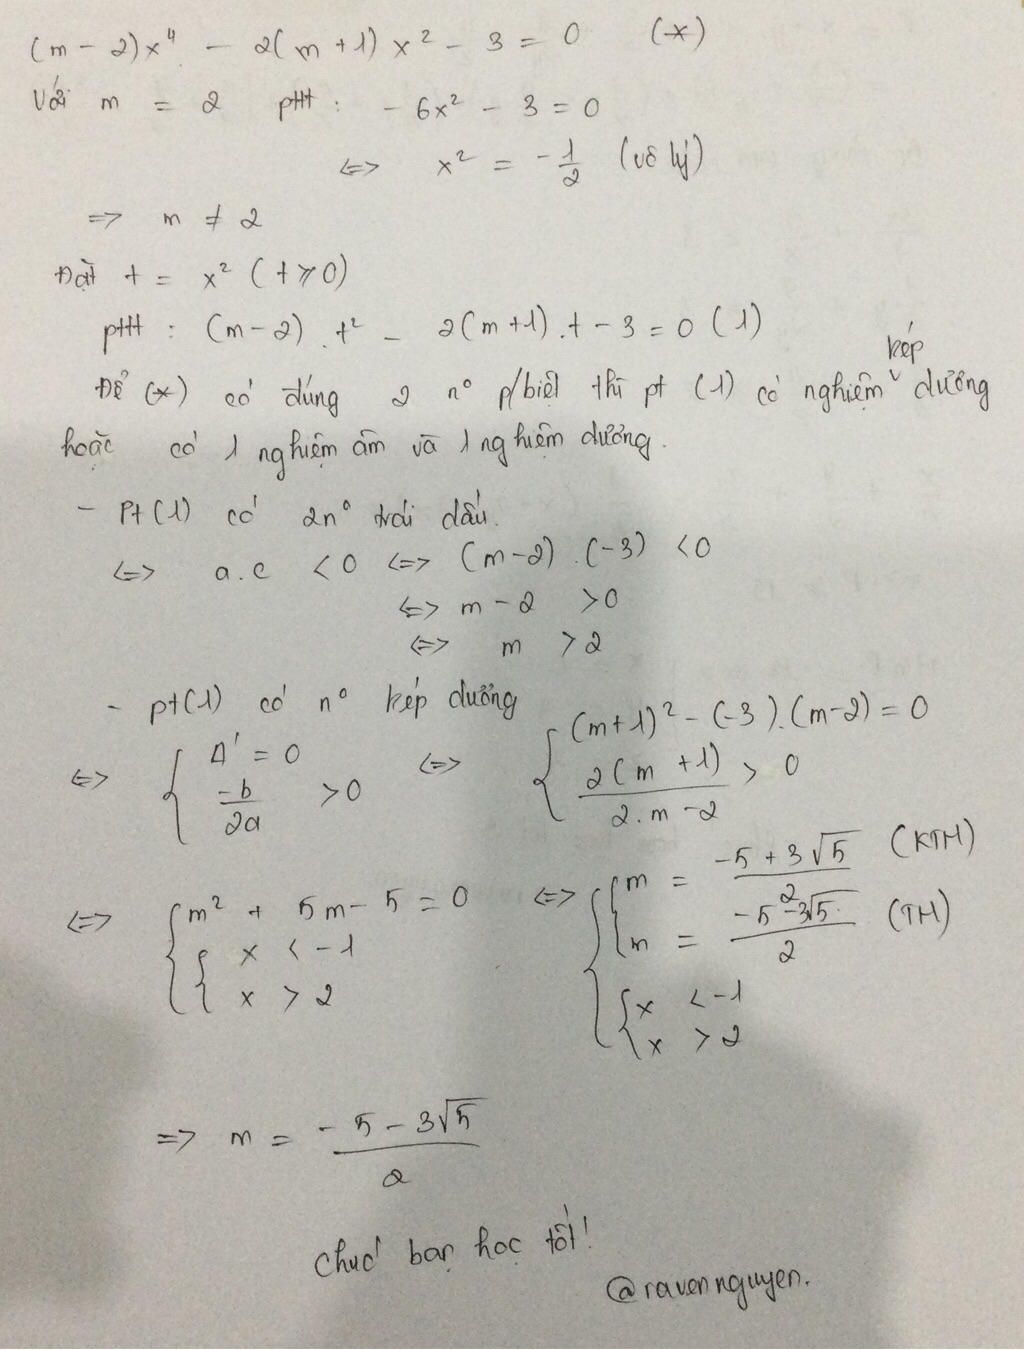 (m - 2)x⁴ - 2(m + 1)x² - 3 = 0 (*)
Với m = 2 pttt : - 6x² - 3 = 0
<=> x² = -1/2 (vô lý)
=> m ≠ 2
Đặt t = x² (t ≥ 0)
pttt : (m - 2).t² - 2(m + 1).t - 3 = 0 (1)
Để (*) có đúng 2 n° p/biệt thì pt (1) có nghiệm kép dương
hoặc có 1 nghiệm âm và 1 nghiệm dương.
- Pt(1) có 2n° trái dấu.
<=> a.c < 0 <=> (m - 2).(-3) < 0
<=> m - 2 > 0
<=> m > 2
- pt(1) có n° kép dương
<=> { Δ' = 0 ; -b/2a > 0 <=> { (m + 1)² - (-3).(m - 2) = 0 ; 2(m + 1)/2.m - 2 > 0
<=> { m² + 5m - 5 = 0 ; { x < -1 ; x > 2 <=> { { m = (-5 + 3√5)/2 (KTM) ; m = (-5 - 3√5)/2 (TM) ; { x < -1 ; x > 2
=> m = (-5 - 3√5)/2
Chúc bạn học tốt!
@ravennguyen.